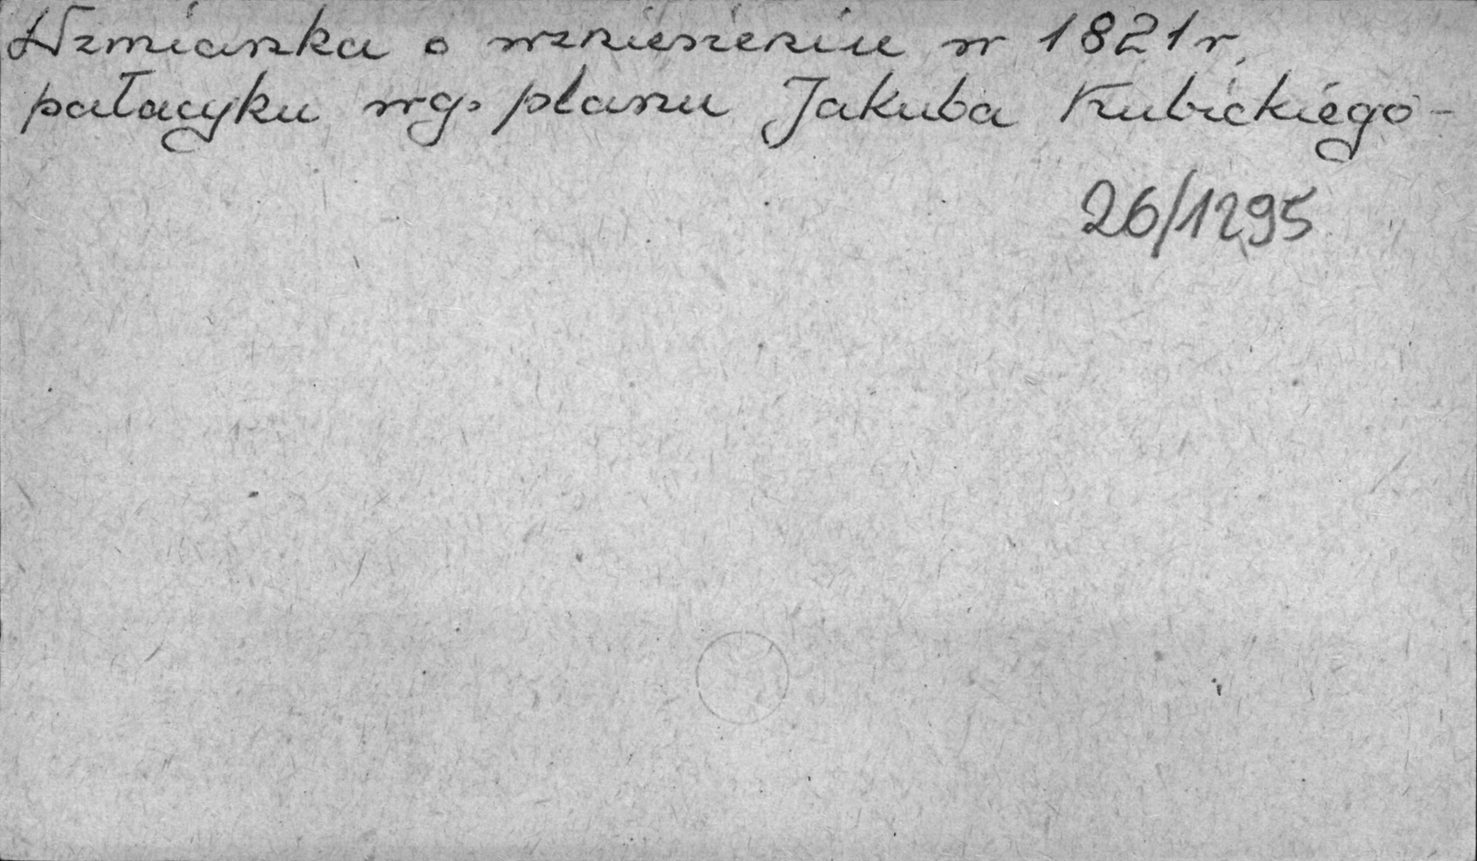 Wzmianka o wzniesieniu w 1821 r.
pałacyku wg. planu Jakuba Kubickiego -
26/1295